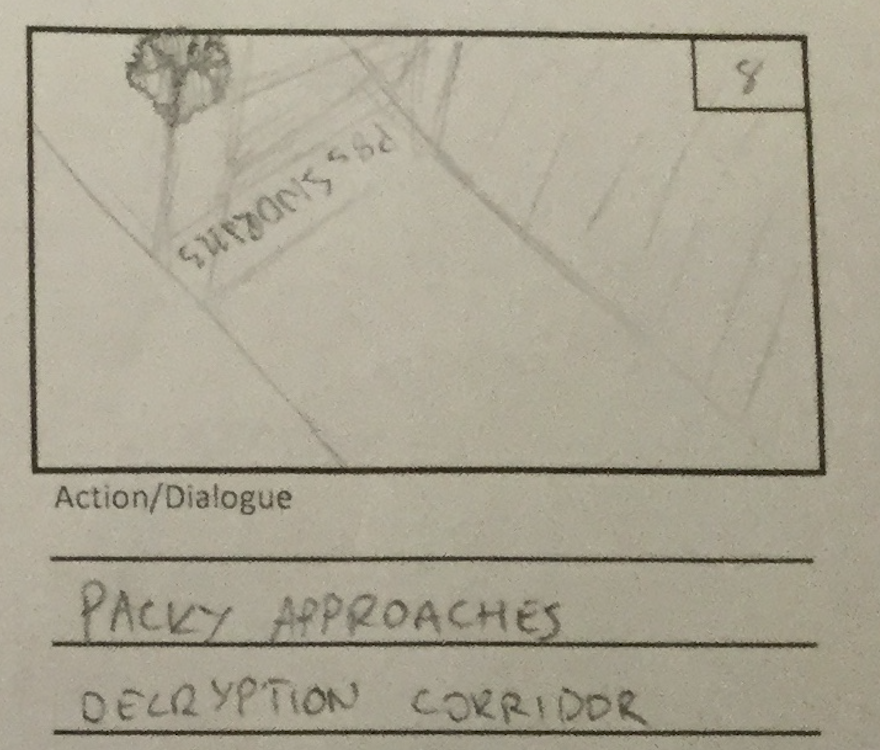 8
Action/Dialogue
PACKY APPROACHES
DECRYPTION CORRIDOR